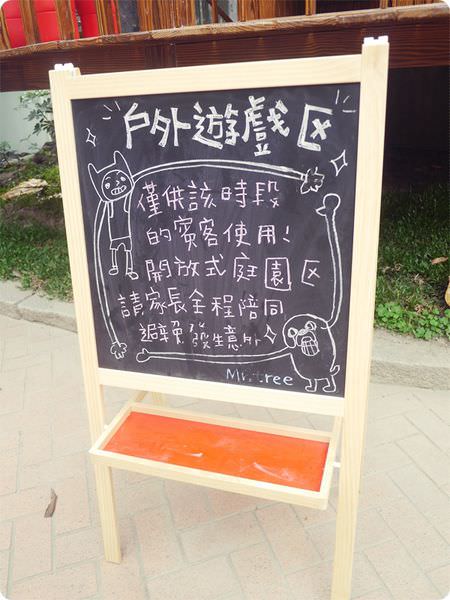 戶外遊戲区
僅供該時段
的賓客使用!
開放式庭園区
請家長全程陪同
避 發生意外
Mr. tree